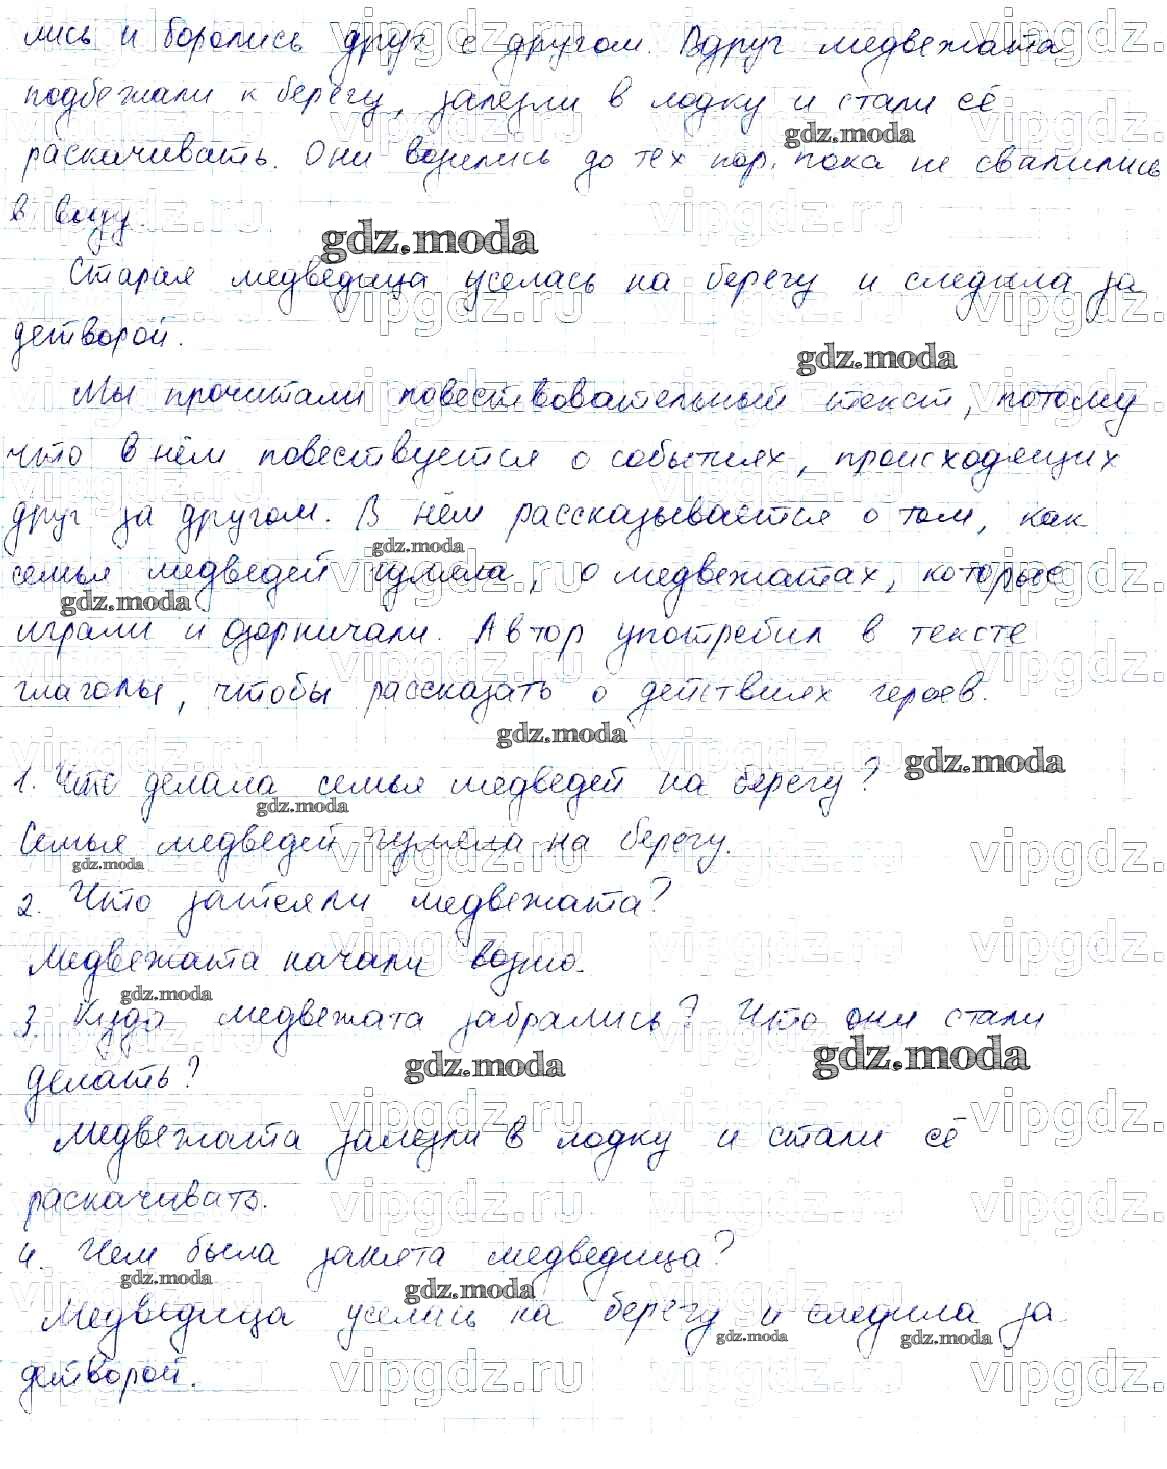 лись и боролись друг с другом. Вдруг медвежата
подбежали к берегу, залезли в лодку и стали её
gdz.moda
раскачивать. Они возились до тех пор, пока не свалились
в воду.
gdz.moda
Старая медведица уселась на берегу и следила за
детворой.
gdz.moda
Мы прочитали повествовательный текст, потому
что в нём повествуется о событиях, происходящих
друг за другом. В нём рассказывается о том, как
gdz.moda
семья медведей гуляла, о медвежатах, которые
gdz.moda
играли и озорничали. Автор употребил в тексте
глаголы, чтобы рассказать о действиях героев.
gdz.moda
1. Что делала семья медведей на берегу?
gdz.moda
gdz.moda
Семья медведей гуляла на берегу.
gdz.moda
2. Что затеяли медвежата?
Медвежата начали возню.
gdz.moda
3. Куда медвежата забрались? Что они стали
gdz.moda
gdz.moda
делать?
Медвежата залезли в лодку и стали её
раскачивать.
4. Чем была занята медведица?
gdz.moda
gdz.moda
Медведица уселась на берегу и следила за
gdz.moda
gdz.moda
детворой.
vipgdz.ru